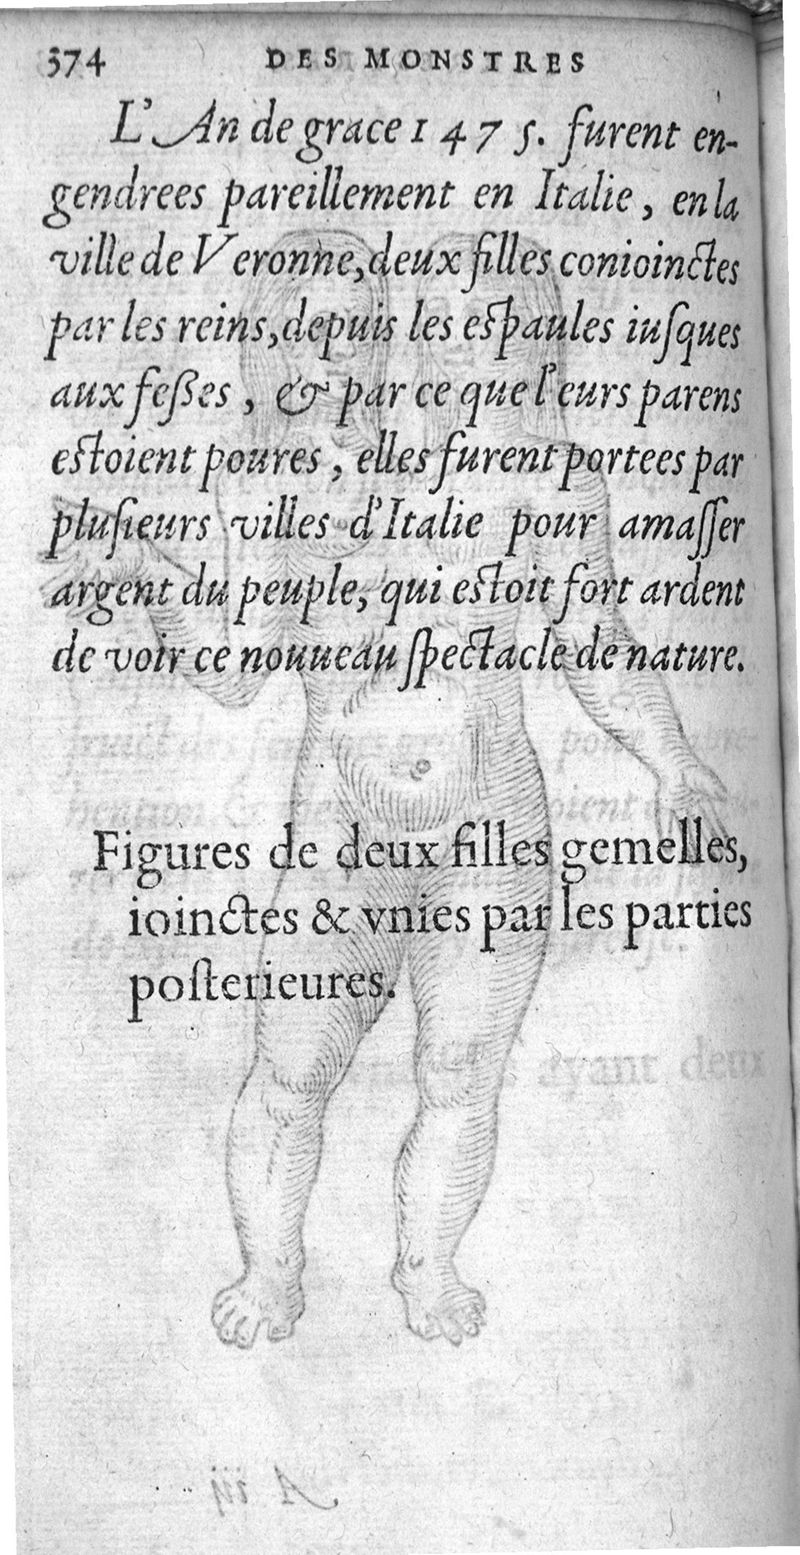 374 DES MONSTRES
L'An de grace 1475. furent en-
gendrees pareillement en Italie, en la
ville de Veronne, deux filles conioinctes
par les reins, depuis les espaules iuſques
aux feßes, & par ce que l'eurs parens
eſtoient poures, elles furent portees par
pluſieurs villes d'Italie pour amaſſer
argent du peuple, qui eſtoit fort ardent
de voir ce nouueau ſpectacle de nature.
Figures de deux filles gemelles,
ioinctes & vnies par les parties
poſterieures.
A iij